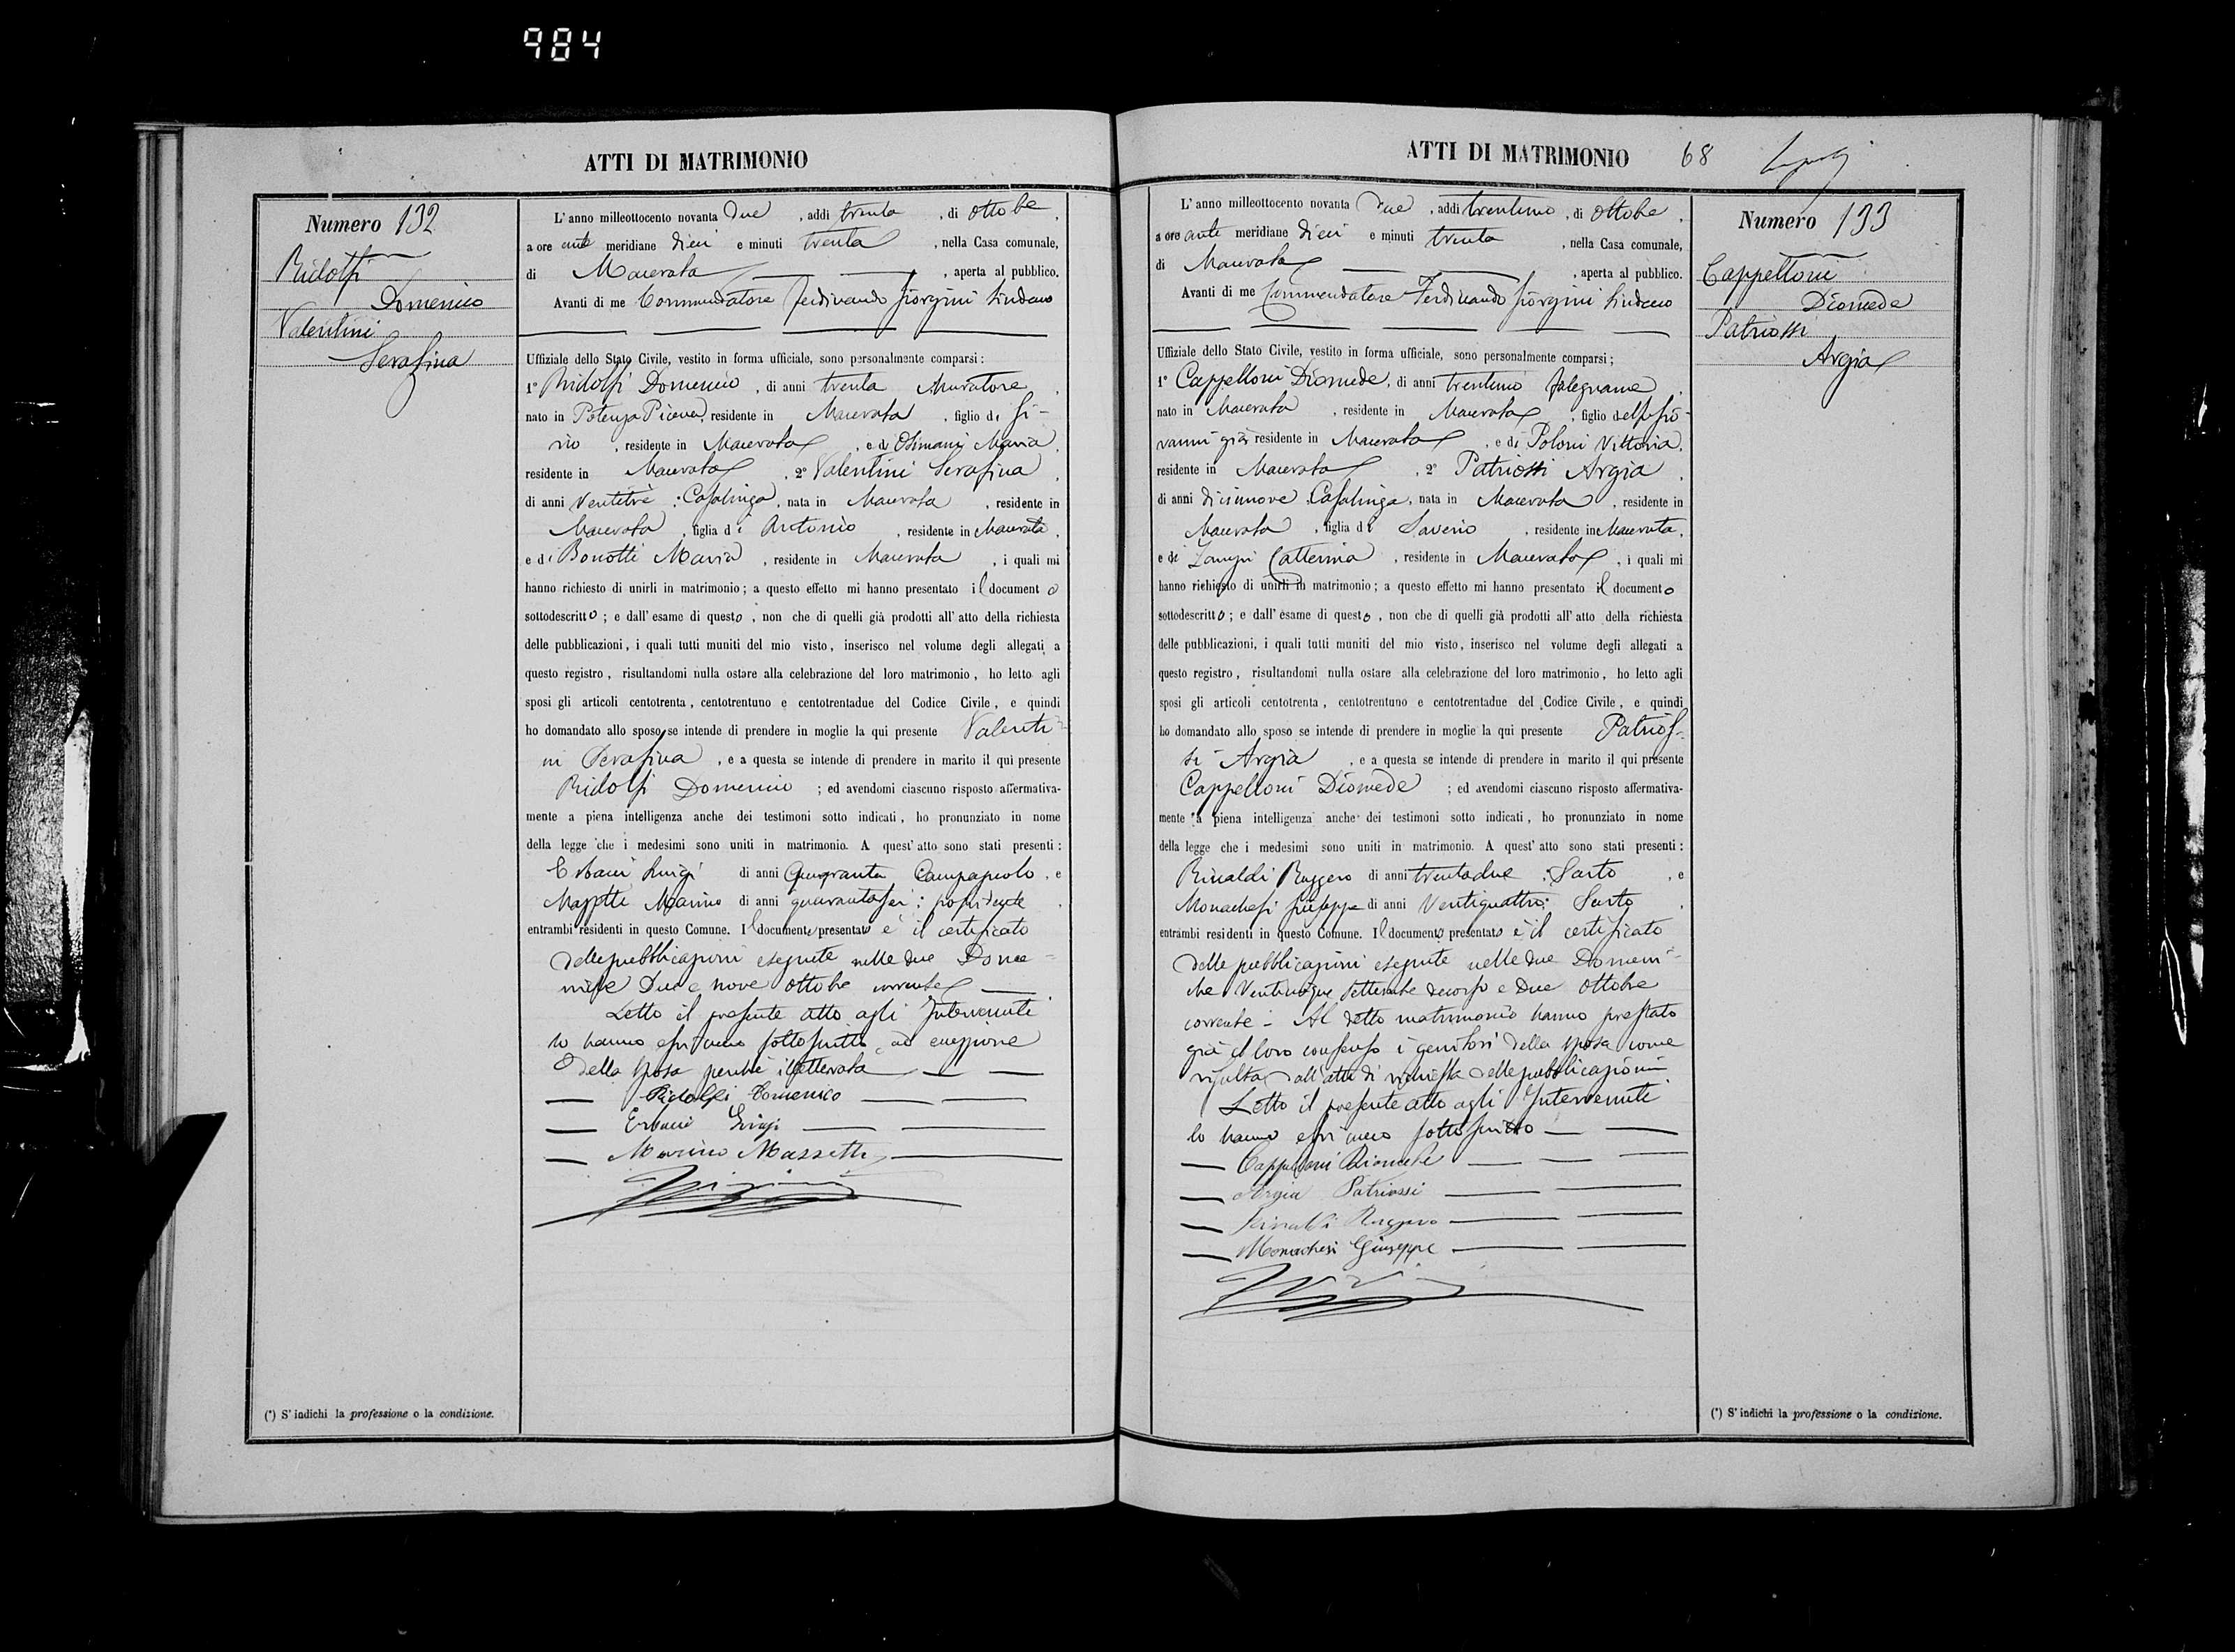 984
ATTI DI MATRIMONIO
Numero 132
Ridolfi
Domenico
Valentini
Serafina
L' anno milleottocento novanta due , addi trenta , di ottobre ,
a ore anti meridiane dieci e minuti trenta , nella Casa comunale,
di Macerata , aperta al pubblico.
Avanti di me Commendatore Ferdinando Giorgini Sindaco
Uffiziale dello Stato Civile, vestito in forma ufficiale, sono personalmente comparsi :
1° Ridolfi Domenico , di anni trenta Muratore ,
nato in Potenza Picena, residente in Macerata , figlio di Gi-
rio , residente in Macerata , e di Osimani Maria ,
residente in Macerata , 2° Valentini Serafina ,
di anni Ventitre : Casalinga , nata in Macerata , residente in
Macerata , figlia di Antonio , residente in Macerata ,
e di Bonotti Maria , residente in Macerata , i quali mi
hanno richiesto di unirli in matrimonio ; a questo effetto mi hanno presentato il documento
sottodescritto ; e dall' esame di questo , non che di quelli già prodotti all' atto della richiesta
delle pubblicazioni , i quali tutti muniti del mio visto , inserisco nel volume degli allegati a
questo registro , risultandomi nulla ostare alla celebrazione del loro matrimonio , ho letto agli
sposi gli articoli centotrenta , centotrentuno e centotrentadue del Codice Civile , e quindi
ho domandato allo sposo se intende di prendere in moglie la qui presente Valenti-
ni Serafina , e a questa se intende di prendere in marito il qui presente
Ridolfi Domenico ; ed avendomi ciascuno risposto affermativa-
mente a piena intelligenza anche dei testimoni sotto indicati , ho pronunziato in nome
della legge che i medesimi sono uniti in matrimonio. A quest' atto sono stati presenti :
Erbaci Luigi di anni Campagnolo , e
Mazzetti Marino di anni quarantasei : possidente .
entrambi residenti in questo Comune. Il documento presentato è il certificato
delle pubblicazioni eseguite nelle due Dome=
niche Due e nove ottobre corrente
Letto il presente atto agli Intervenuti
lo hanno essi meco sottoscritto ad eccezione
della sposa perchè illetterata
Ridolfi Domenico
Erbaci Luigi
Marino Mazzetti
(*) S' indichi la professione o la condizione.
ATTI DI MATRIMONIO 68
Numero 133
Cappelloni
Diomede
Patriossi
Argia
L' anno milleottocento novanta due , addi trentuno , di ottobre ,
a ore anti meridiane dieci e minuti trenta , nella Casa comunale,
di Macerata , aperta al pubblico.
Avanti di me Commendatore Ferdinando Giorgini Sindaco
Uffiziale dello Stato Civile, vestito in forma ufficiale, sono personalmente comparsi ;
1° Cappelloni Diomede, di anni trentuno falegname ,
nato in Macerata , residente in Macerata , figlio del fu Gio-
vanni già residente in Macerata , e di Poloni Vittoria,
residente in Macerata , 2° Patriossi Argia ,
di anni dicinnove Casalinga , nata in Macerata , residente in
Macerata , figlia di Saverio , residente in Macerata,
e di Zampi Catterina , residente in Macerata , i quali mi
hanno richiesto di unirli in matrimonio ; a questo effetto mi hanno presentato il documento
sottodescritto ; e dall' esame di questo , non che di quelli già prodotti all' atto della richiesta
delle pubblicazioni, i quali tutti muniti del mio visto, inserisco nel volume degli allegati a
questo registro , risultandomi nulla ostare alla celebrazione del loro matrimonio , ho letto agli
sposi gli articoli centotrenta , centotrentuno e centotrentadue del Codice Civile , e quindi
ho domandato allo sposo se intende di prendere in moglie la qui presente Patrios-
si Argia , e a questa se intende di prendere in marito il qui presente
Cappelloni Diomede ; ed avendomi ciascuno risposto affermativa-
mente a piena intelligenza anche dei testimoni sotto indicati , ho pronunziato in nome
della legge che i medesimi sono uniti in matrimonio. A quest' atto sono stati presenti :
Rinaldi Ruggero di anni trentadue : Sarto , e
Monachesi Giuseppe di anni Ventiquattro: Sarto .
entrambi residenti in questo Comune. Il documento presentato è il certificato
delle pubblicazioni eseguite nelle due Domeni=
che Venticinque Settembre decorso e Due ottobre
corrente - Al detto matrimonio hanno prestato
già il loro consenso i genitori della sposa come
risulta dall'atto di richiesta delle pubblicazioni
Letto il presente atto agli Intervenuti
lo hanno essi meco sottoscritto
Cappelloni Diomede
Argia Patriossi
Rinaldi Ruggero
Monachesi Giuseppe
(*) S' indichi la professione o la condizione.